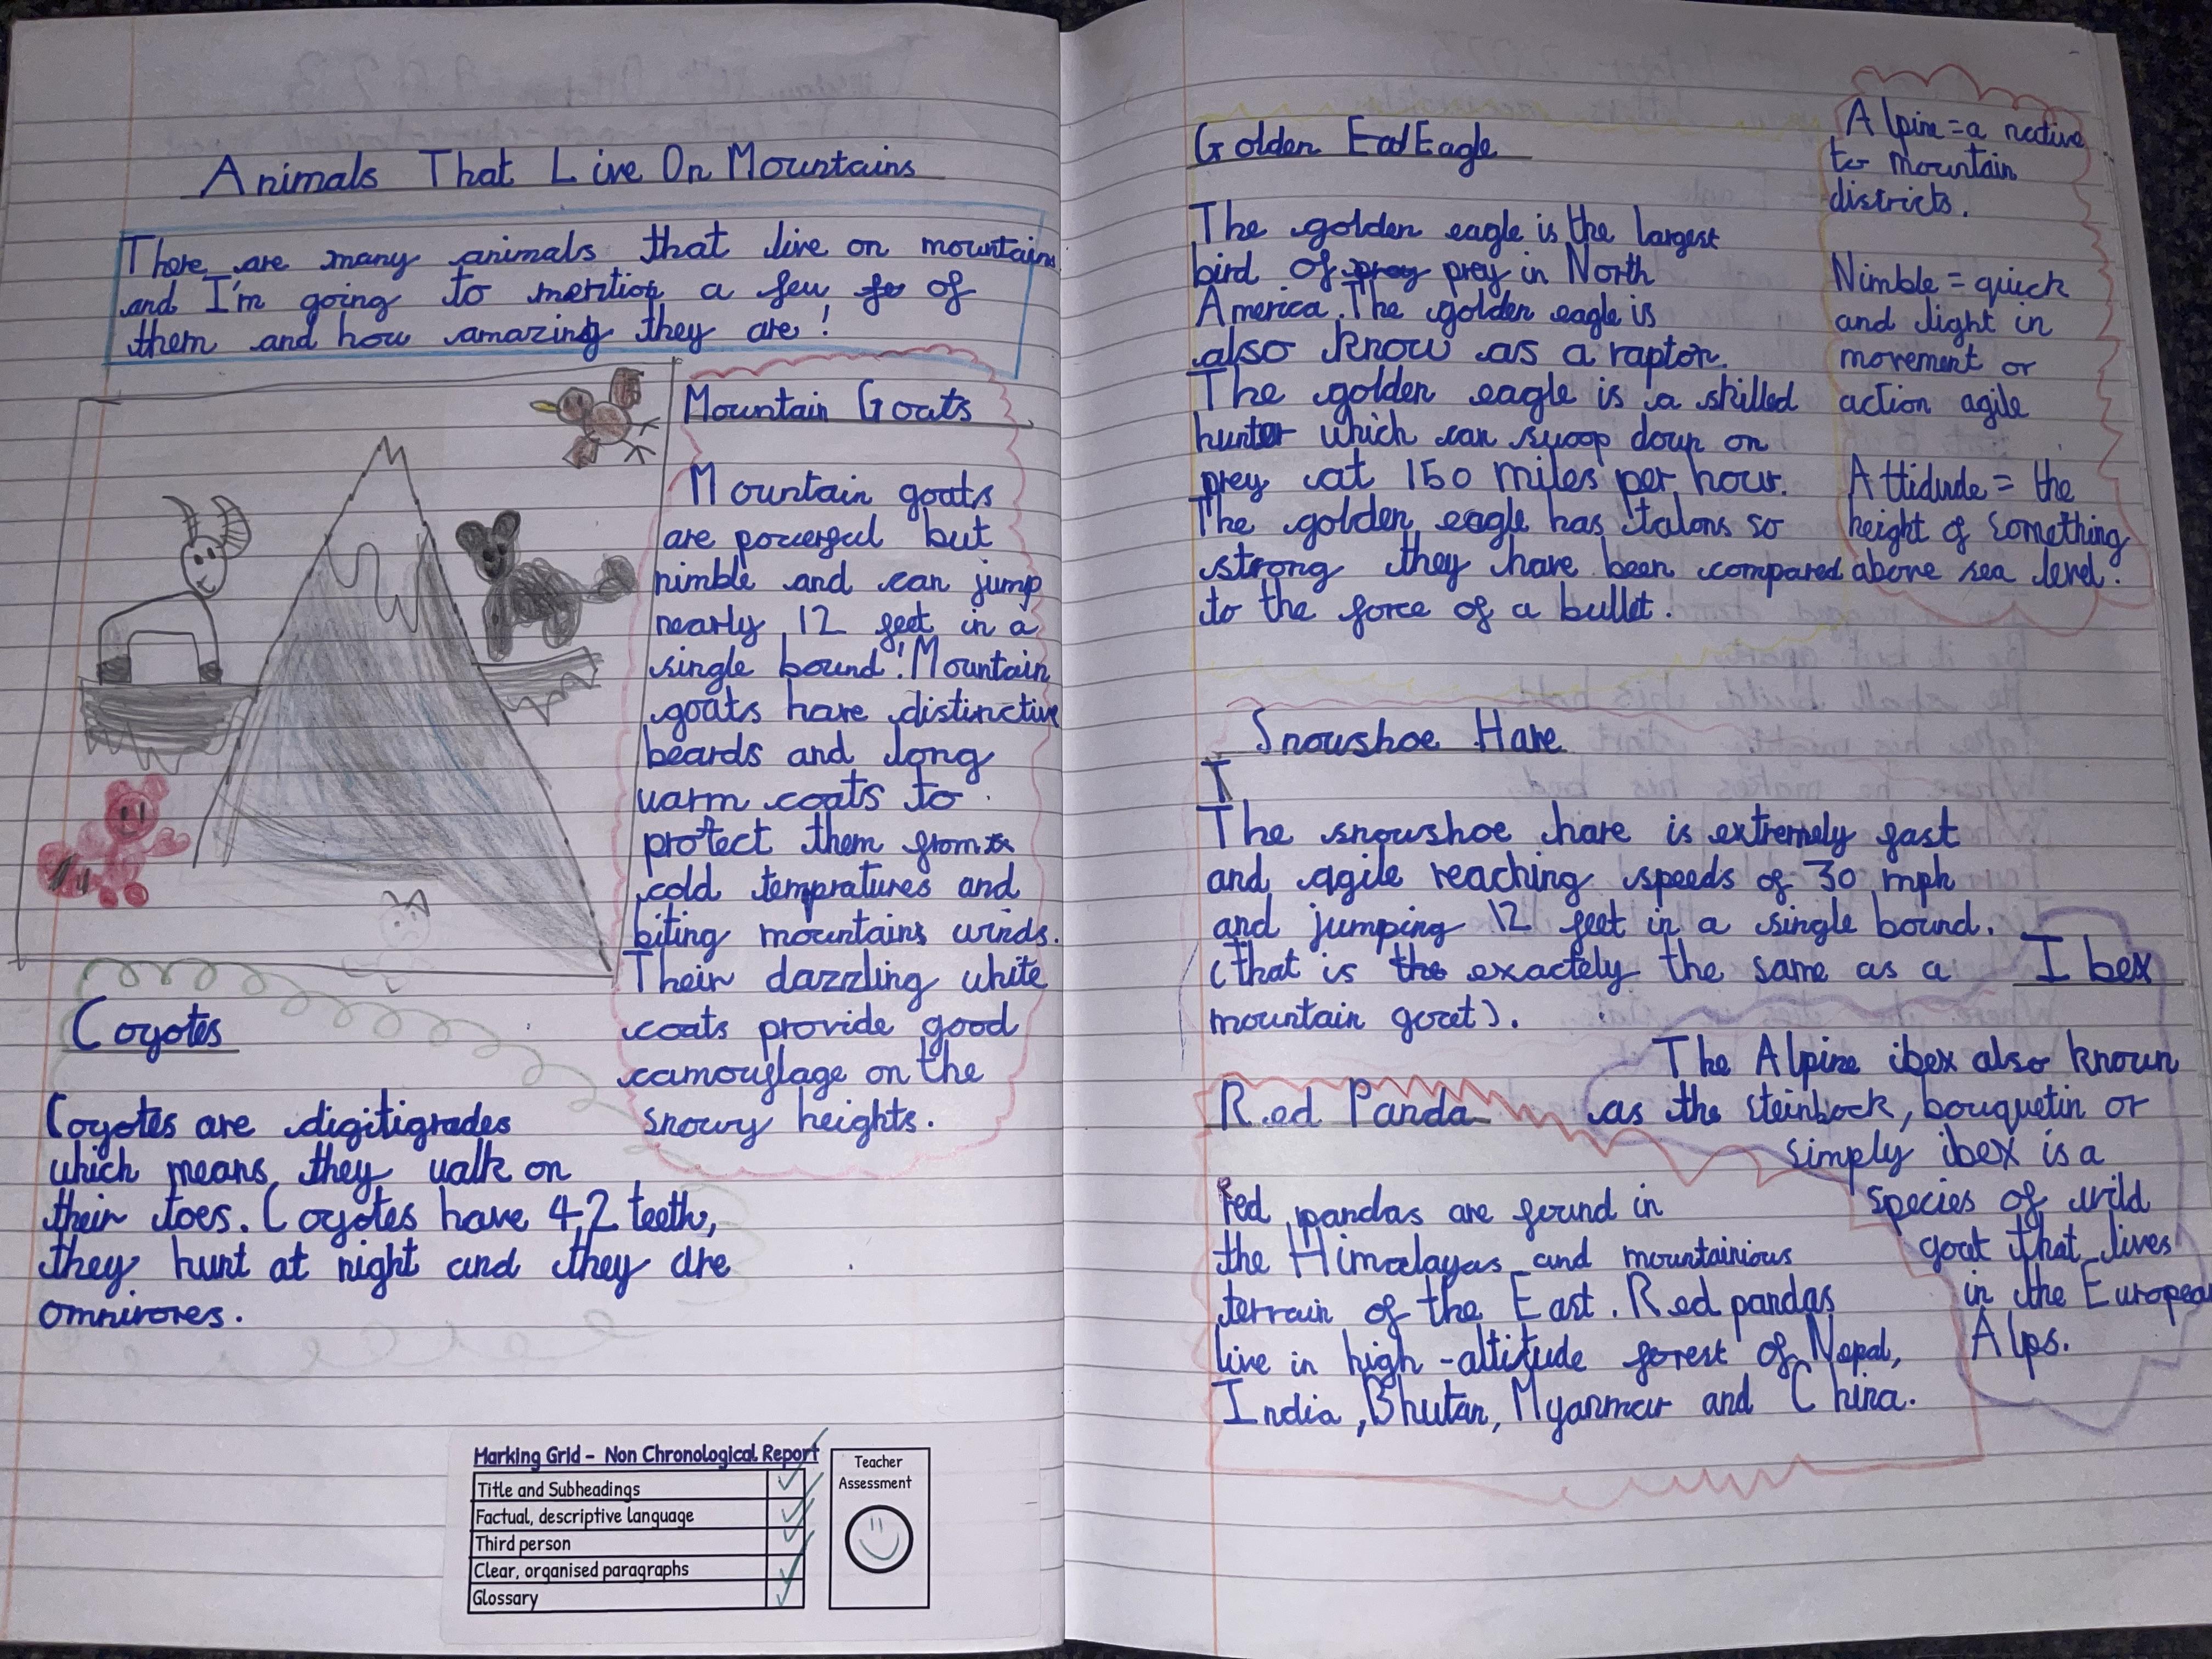 Animals That Live On Mountains
There are many animals that live on mountains
and I'm going to mention a few fo of
them and how amazing they are!
Mountain Goats
Mountain goats
are powerful but
nimble and can jump
nearly 12 feet in a
single bound! Mountain
goats have distinctive
beards and long
warm coats to
protect them from
cold tempratures and
biting mountains winds.
Their dazzling white
coats provide good
camouflage on the
snowy heights.
Coyotes
Coyotes are digitigrades
which means they walk on
their toes. Coyotes have 42 teeth,
they hunt at night and they are
omnivores.
Marking Grid - Non Chronological Report
Title and Subheadings
Factual, descriptive language
Third person
Clear, organised paragraphs
Glossary
Teacher
Assessment
Golden Eagle
The golden eagle is the largest
bird of prey prey in North
America. The golden eagle is
also know as a raptor.
The golden eagle is a skilled
hunter which can swoop down on
prey at 150 miles per hour.
The golden eagle has talons so
strong they have been compared
to the force of a bullet.
Alpine = a native
to mountain
districts.
Nimble = quick
and light in
movement or
action agile
Attidude = the
height of something
above sea level.
Snowshoe Hare
T
The snowshoe hare is extremely fast
and agile reaching speeds of 30 mph
and jumping 12 feet in a single bound.
(that is the exactely the same as a
mountain goat).
Ibex
The Alpine ibex also known
as the steinbock, bouquetin or
simply ibex is a
species of wild
goat that lives
in the European
Alps.
Red Panda
Red pandas are found in
the Himalayas and mountainious
terrain of the East. Red pandas
live in high-altitude forest of Nepal,
India, Bhutan, Myanmar and China.